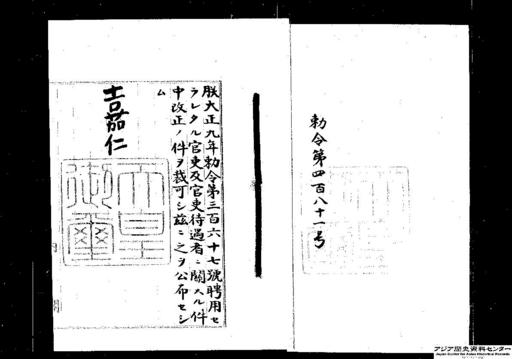 勅令第四百八十一号
朕大正九年勅令第三百六十七號聘用セ
ラレタル官吏及官吏待遇者ニ關スル件
中改正ノ件ヲ裁可シ茲ニ之ヲ公布セシ
ム
嘉仁
天皇
御璽
アジア歴史資料センター
Japan Center for Asian Historical Records